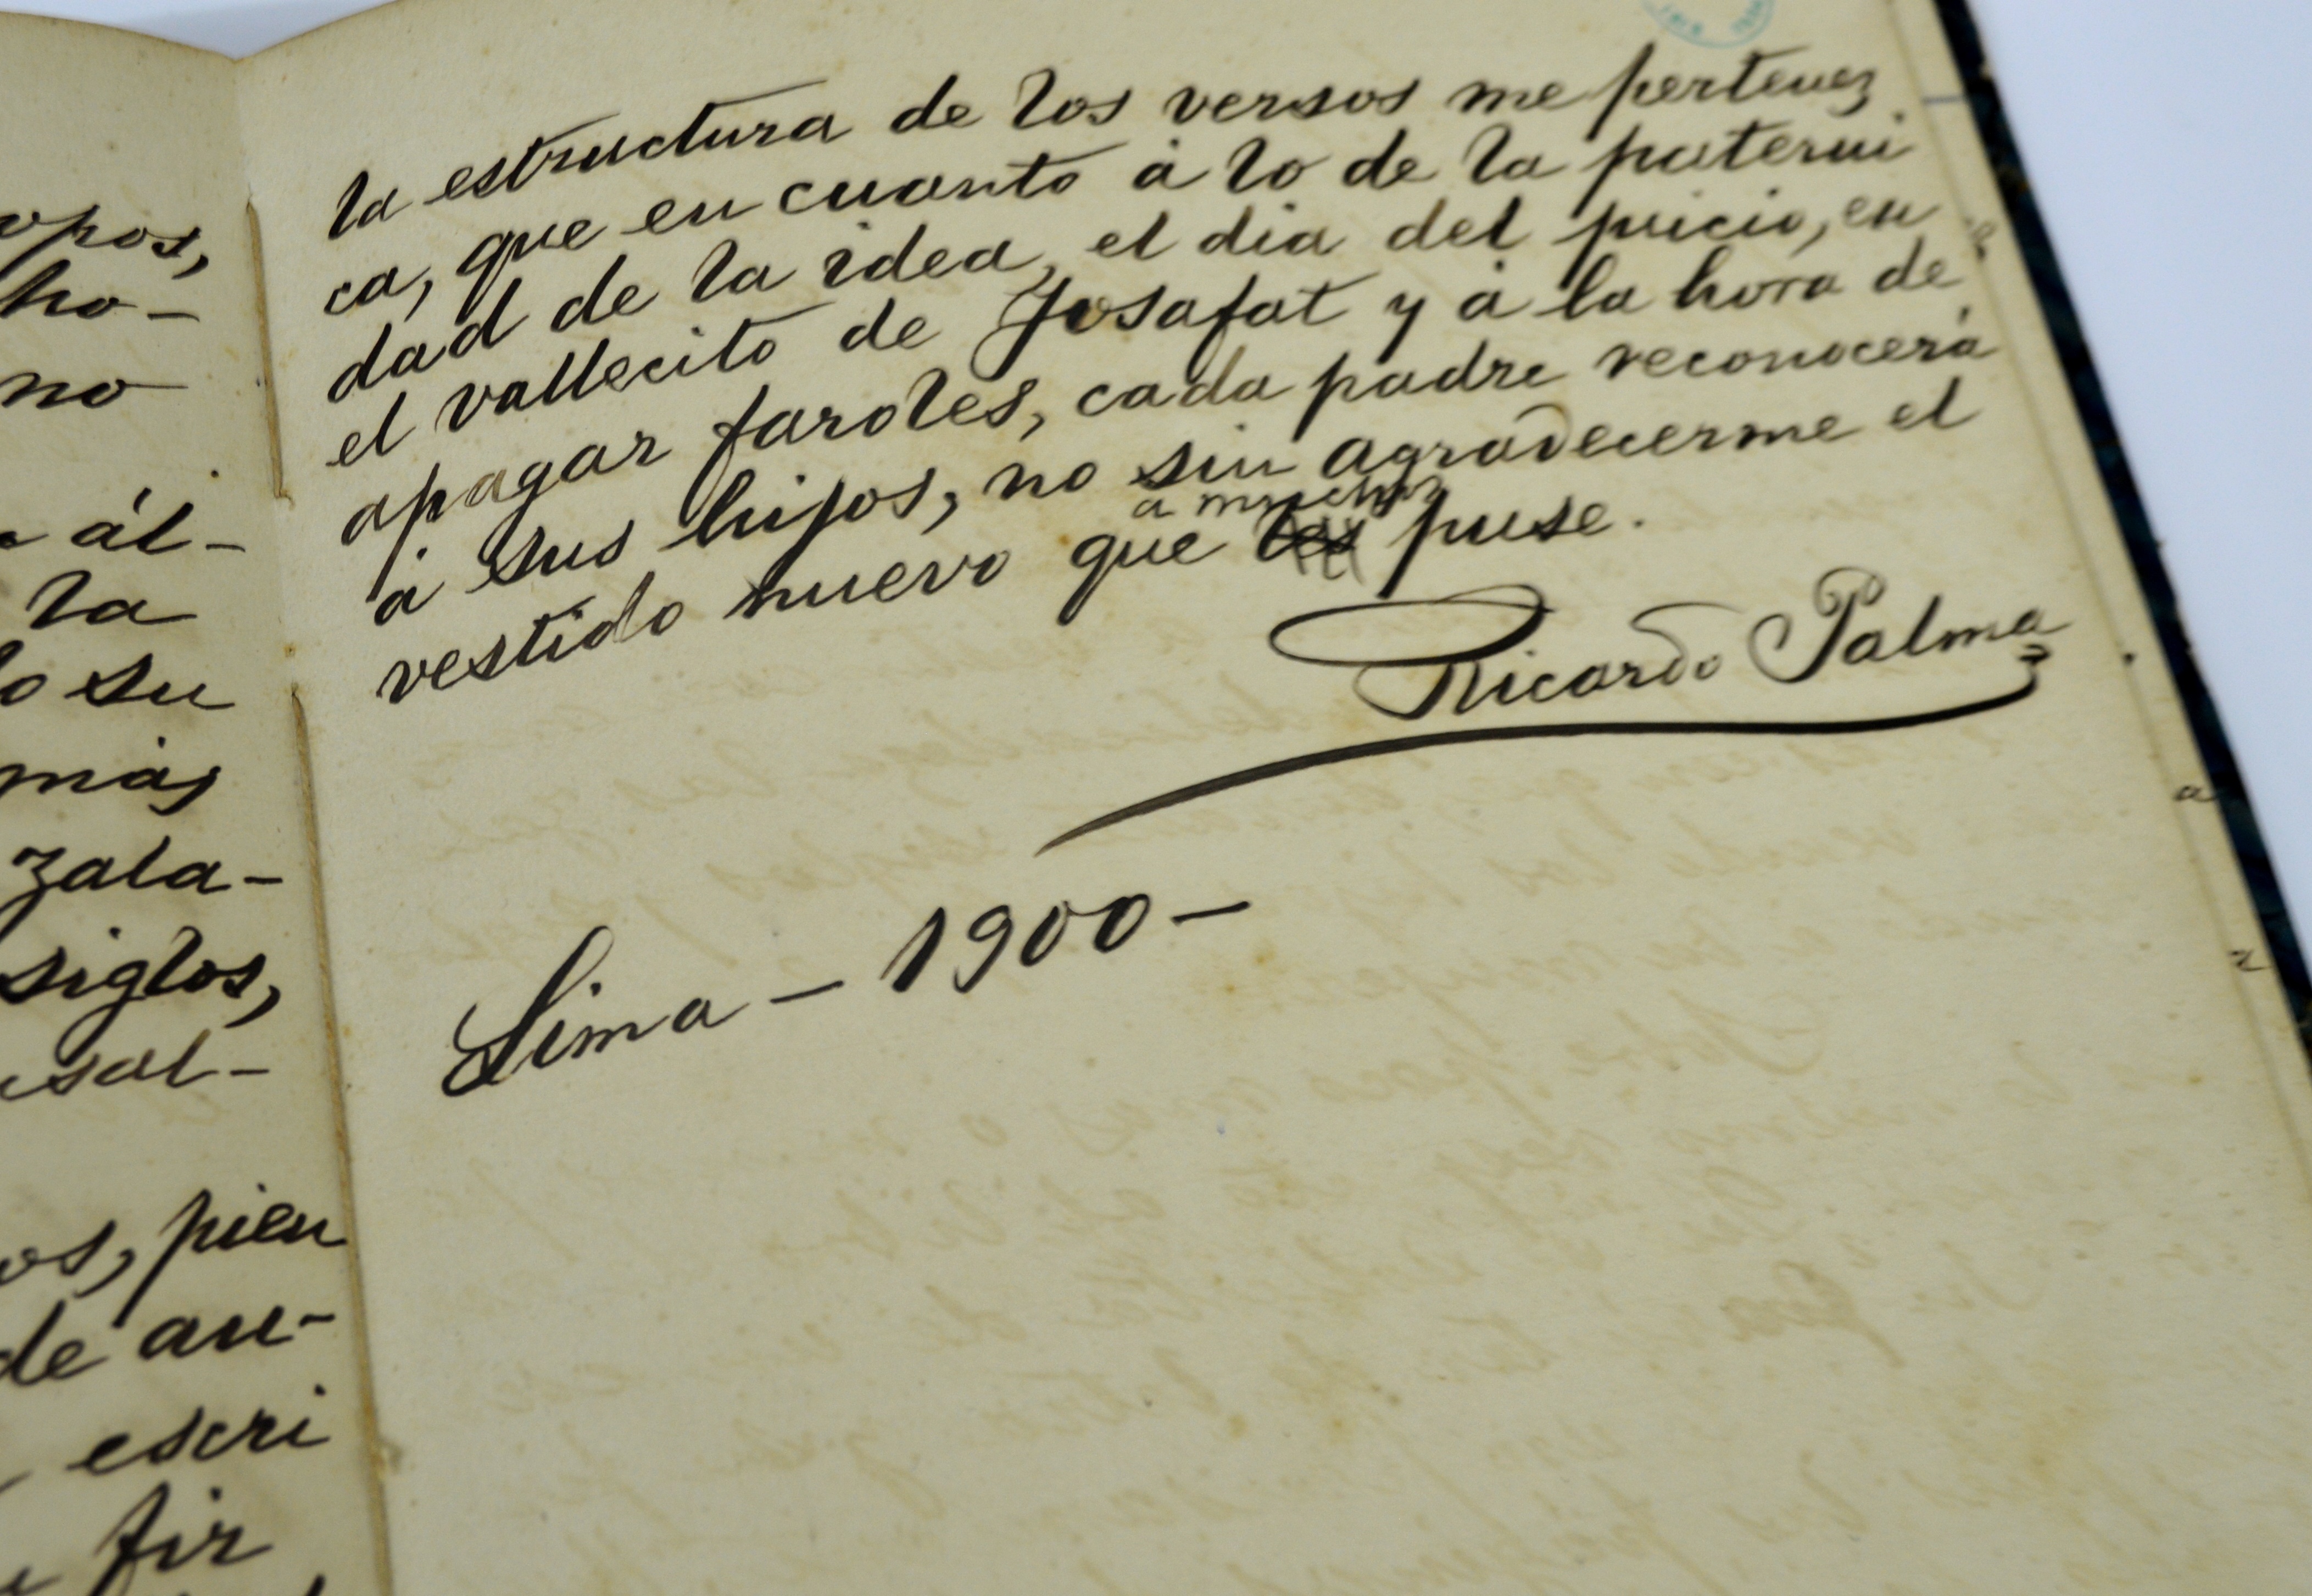 opos,
ho-
no
ál-
la
o su
más
zala-
siglos,
sal-
os, pien
de au-
escri
fir
la estructura de los versos me pertenez
ca, que en cuanto á lo de la paterni
dad de la idea, el dia del juicio, en
el vallecito de Josafat y á la hora de
apagar faroles, cada padre reconocerá
á sus hijos, no sin agradecerme el
a muchos
vestido nuevo que les puse.
Ricardo Palma
Lima - 1900 -